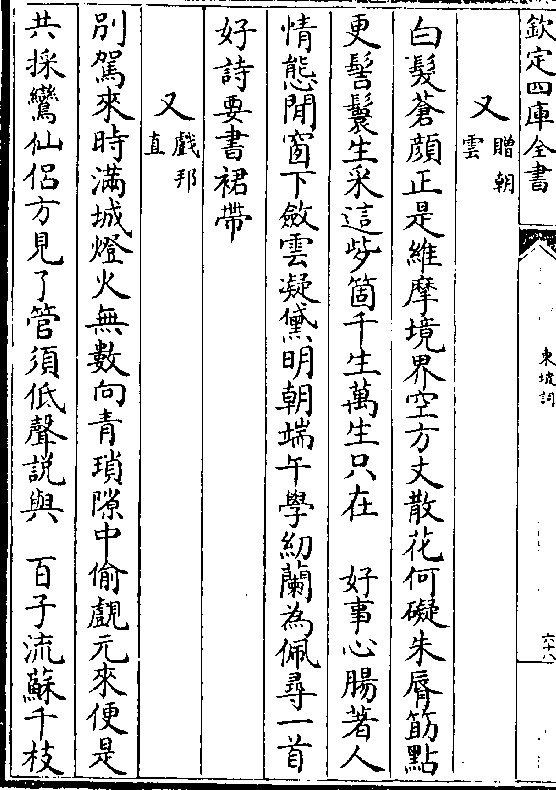 欽定四庫全書
東坡詞
六十八
又 贈朝雲
白髮蒼顔正是維摩境界空方丈散花何礙朱脣筯點
更髻鬟生采這些箇千生萬生只在　好事心腸著人
情態閒窗下斂雲凝黛明朝端午學紉蘭為佩尋一首
好詩要書裙帶
又 戲邦直
别駕來時滿城燈火無數向青瑣隙中偷覰元來便是
共採鸞仙侣方見了管須低聲説與　百子流蘇千枝